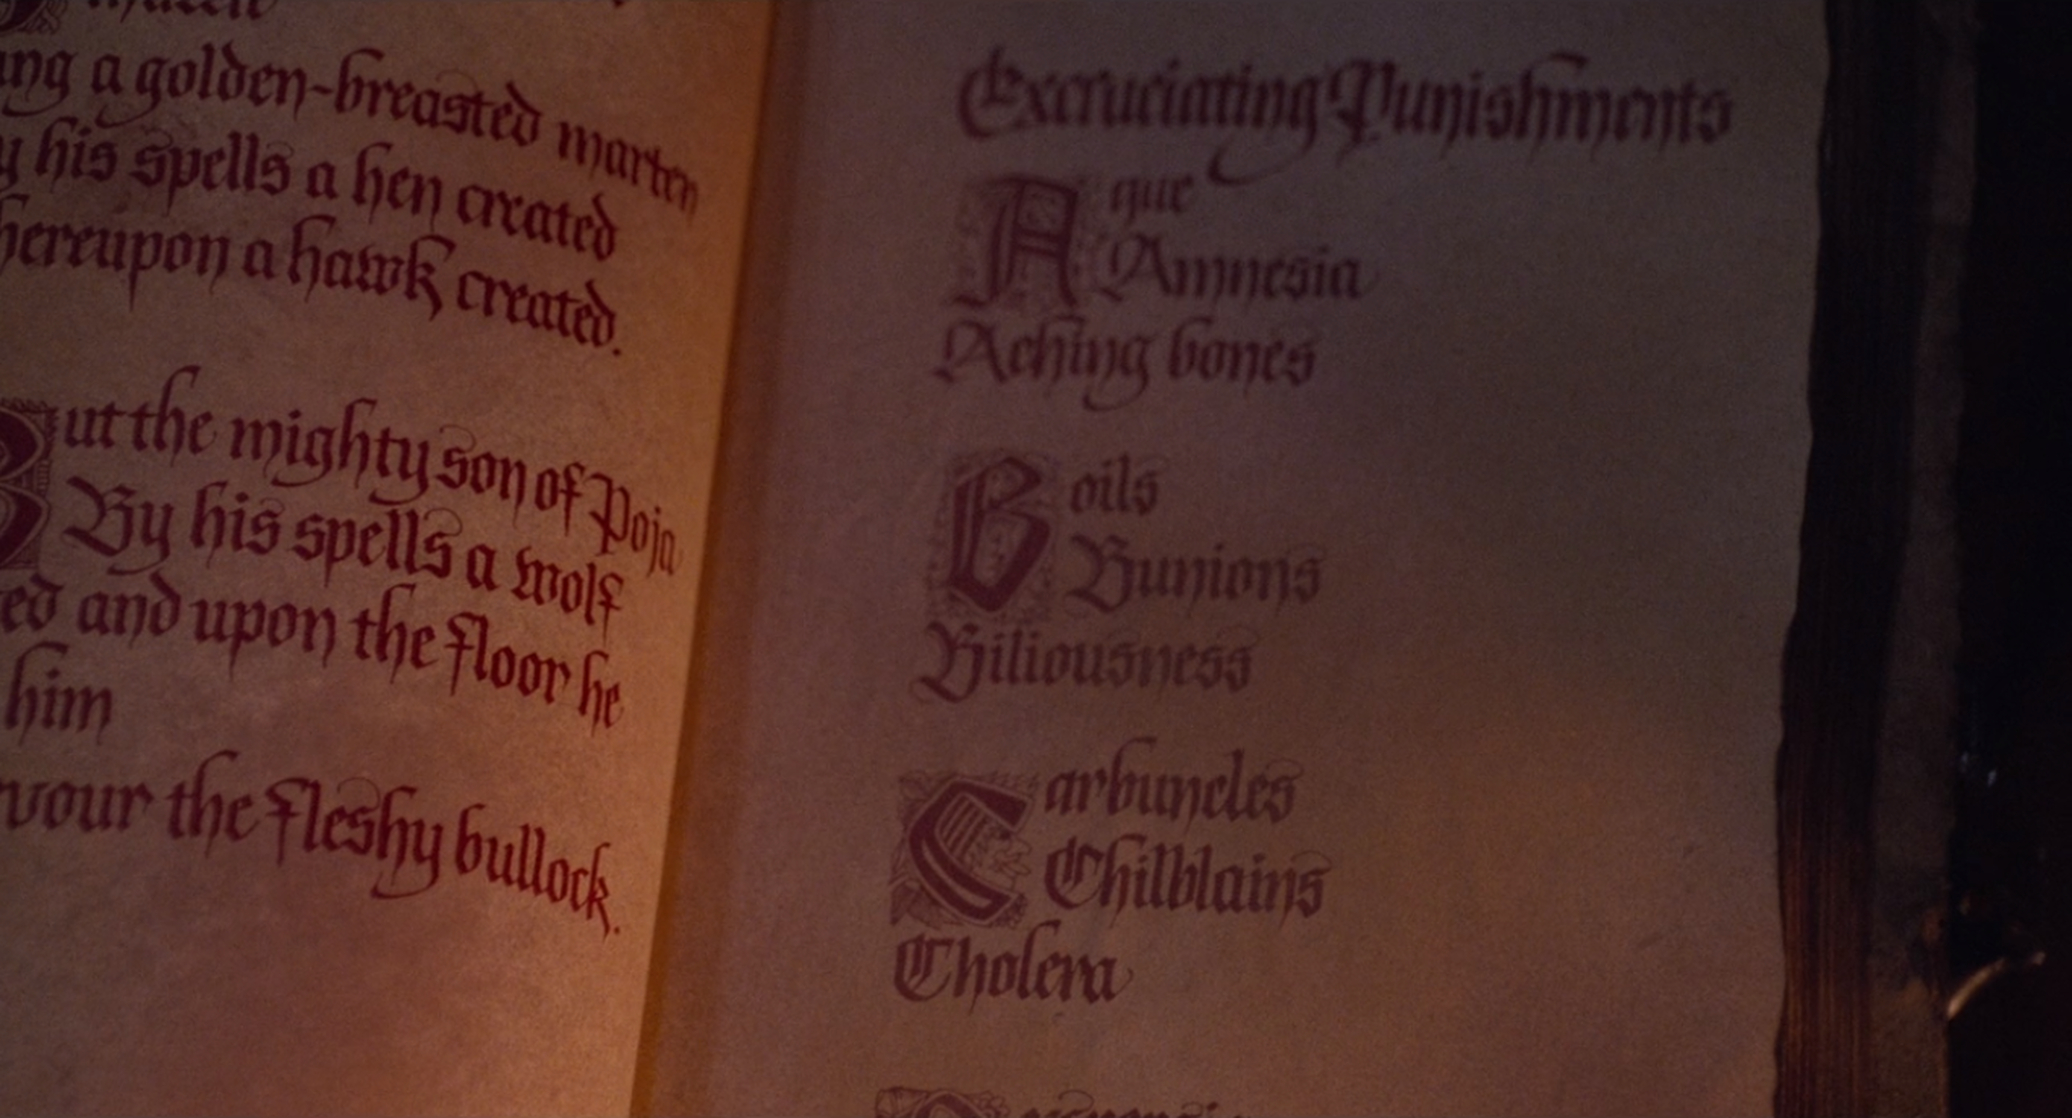 ing a golden-breasted marten
y his spells a hen created
hereupon a hawk created.
But the mighty son of Poja
By his spells a wolf
ed and upon the floor he
him
vour the fleshy bullock.
Excruciating Punishments
Ague
Amnesia
Aching bones
Boils
Bunions
Biliousness
Carbuncles
Chilblains
Cholera